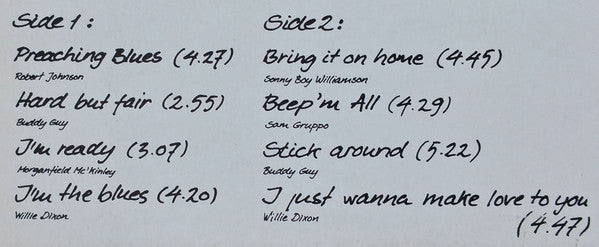 Side 1:
Preaching Blues (4.27)
Robert Johnson
Hard but fair (2.55)
Buddy Guy
I'm ready (3.07)
Morganfield Mc'Kinley
I'm the blues (4.20)
Willie Dixon
Side 2:
Bring it on home (4.45)
Sonny Boy Williamson
Beep'm All (4.29)
Sam Gruppo
Stick around (5.22)
Buddy Guy
I just wanna make love to you
(4.47)
Willie Dixon